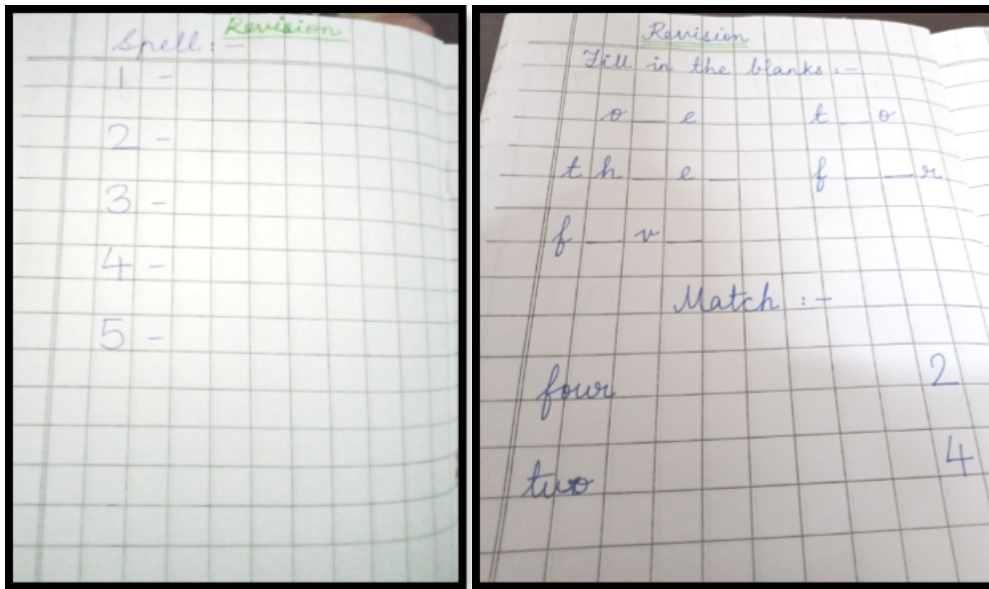 Revision
Spell :-
1 -
2 -
3 -
4 -
5 -
Revision
Fill in the blanks :-
o _ e t _ o
t h _ e _ f _ _ r
f _ v _
Match :-
four 2
two 4